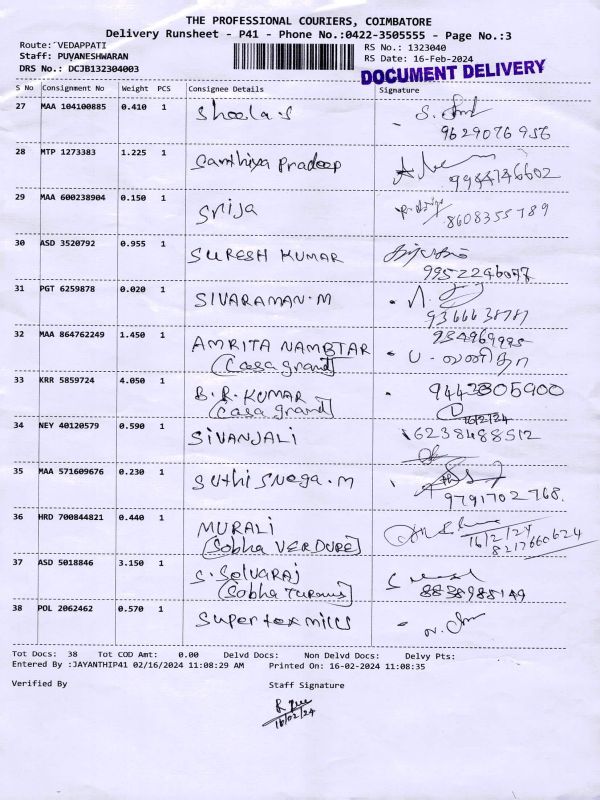 THE PROFESSIONAL COURIERS, COIMBATORE
Delivery Runsheet - P41 - Phone No.:0422-3505555 - Page No.:3
Route: VEDAPPATI RS No.: 1323040
Staff: PUVANESHWARAN RS Date: 16-Feb-2024
DRS No.: DCJB132304003 DOCUMENT DELIVERY
S No Consignment No Weight PCS Consignee Details Signature
27 MAA 104100885 0.410 1 Sheela S
9629076956
28 MTP 1273383 1.225 1 Santhiya Pradeep
9944746602
29 MAA 600238904 0.150 1 Srija
8608355789
30 ASD 3520792 0.955 1 SURESH KUMAR
31 PGT 6259878 0.020 1 SIVARAMAN.M
32 MAA 864762249 1.450 1 AMRITA NAMBIAR
(Casa grand)
33 KRR 5859724 4.050 1 B.R.KUMAR 9442805900
(Casa grand) 16/2/24
34 NEY 40120579 0.590 1 SIVANJALI 6238488512
35 MAA 571609676 0.230 1 Suthi Snega.M
9791702768.
36 HRD 700844821 0.440 1 MURALI
(Sobha VERDURE) 16/2/24
8217660624
37 ASD 5018846 3.150 1 S. Selvaraj
(Sobha Turans) 8838985149
38 POL 2062462 0.570 1 Supertex mills
Tot Docs: 38 Tot COD Amt: 0.00 Delvd Docs: Non Delvd Docs: Delvy Pts:
Entered By :JAYANTHIP41 02/16/2024 11:08:29 AM Printed On: 16-02-2024 11:08:35
Verified By Staff Signature
16/02/24